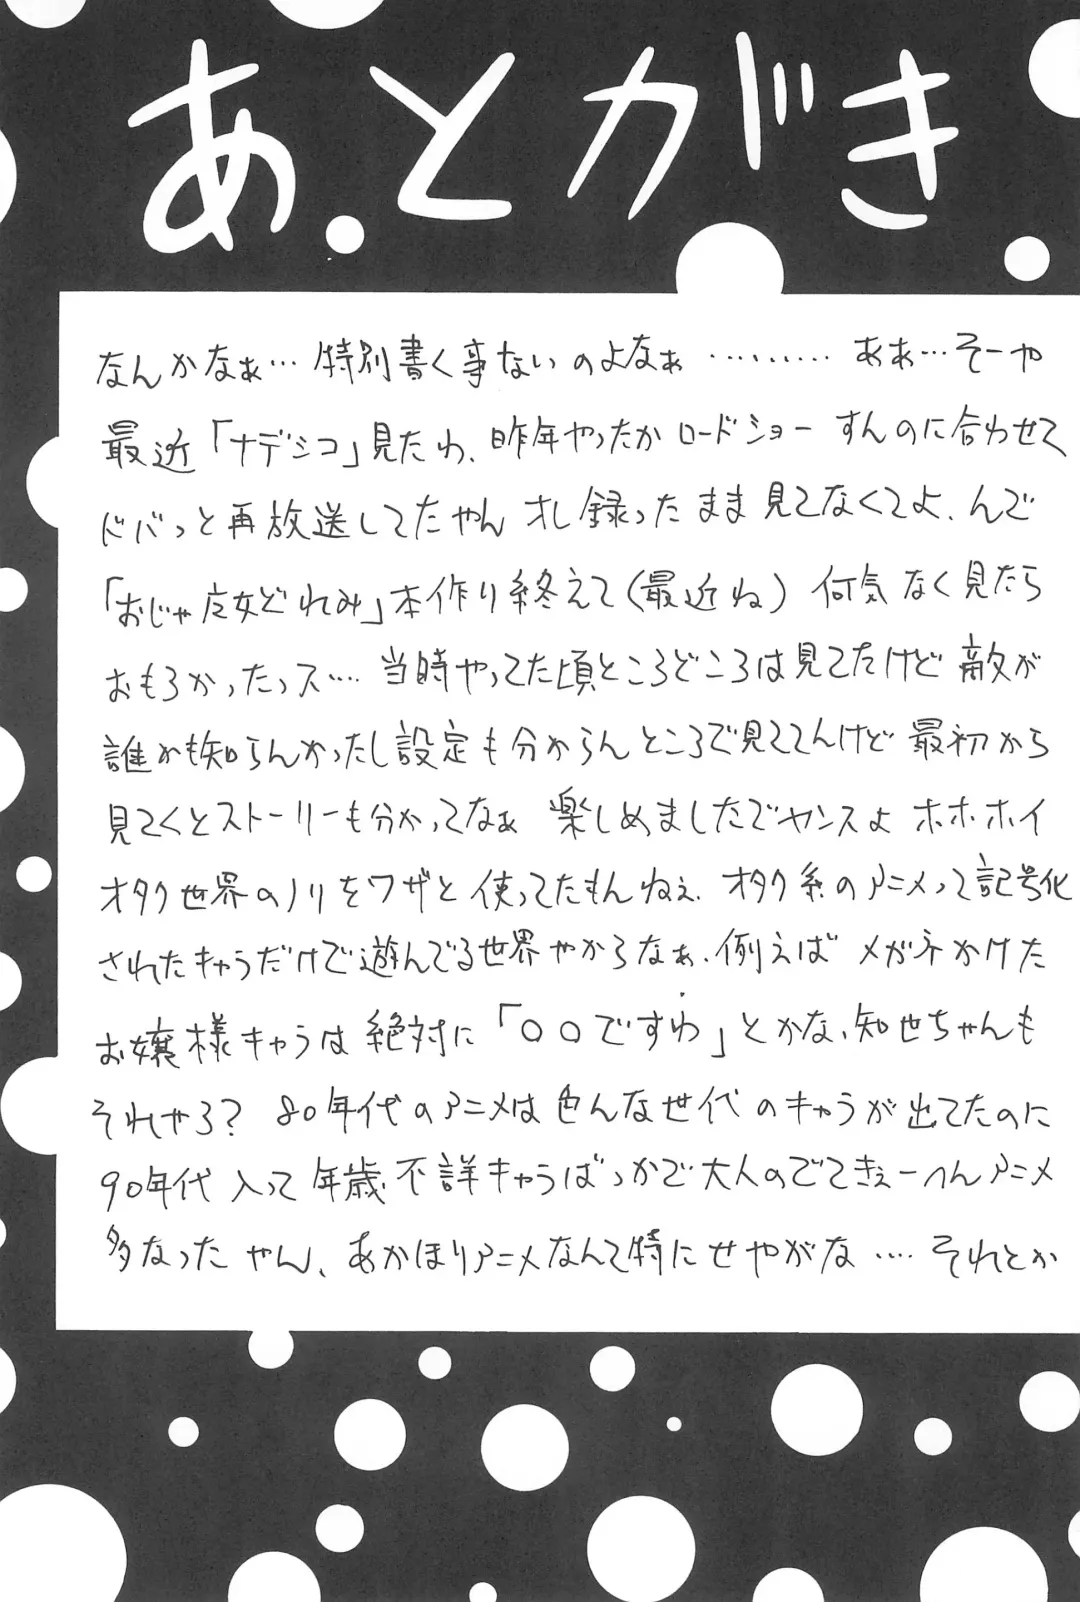 あとがき
なんかなぁ…特別書く事ないのよなぁ………ああ…そーや
最近「ナデシコ」見たわ、昨年やったかロードショーすんのに合わせて
ドバっと再放送してたやんオレ録ったまま見てなくてよ、んで
「おじゃ魔女どれみ」本作り終えて(最近ね)何気なく見たら
おもろかったっス…。当時やってた頃ところどころは見てたけど敵が
誰かも知らんかったし設定も分からんところで見ててんけど最初から
見てくとストーリーも分かってなぁ 楽しめましたでヤンスよ ホホホイ
オタク世界のノリをワザと使ってたもんねぇ、オタク系のアニメって記号化
されたキャラだけで遊んでる世界やからなぁ、例えばメガネかけた
お嬢様キャラは絶対に「〇〇ですわ」とかな、知世ちゃんも
それやろ?80年代のアニメは色んな世代のキャラが出てたのに
90年代入って年歳不詳キャラばっかで大人のでてきぇーへんアニメ
多なったやん、あかほりアニメなんて特にせやがな…。それとか